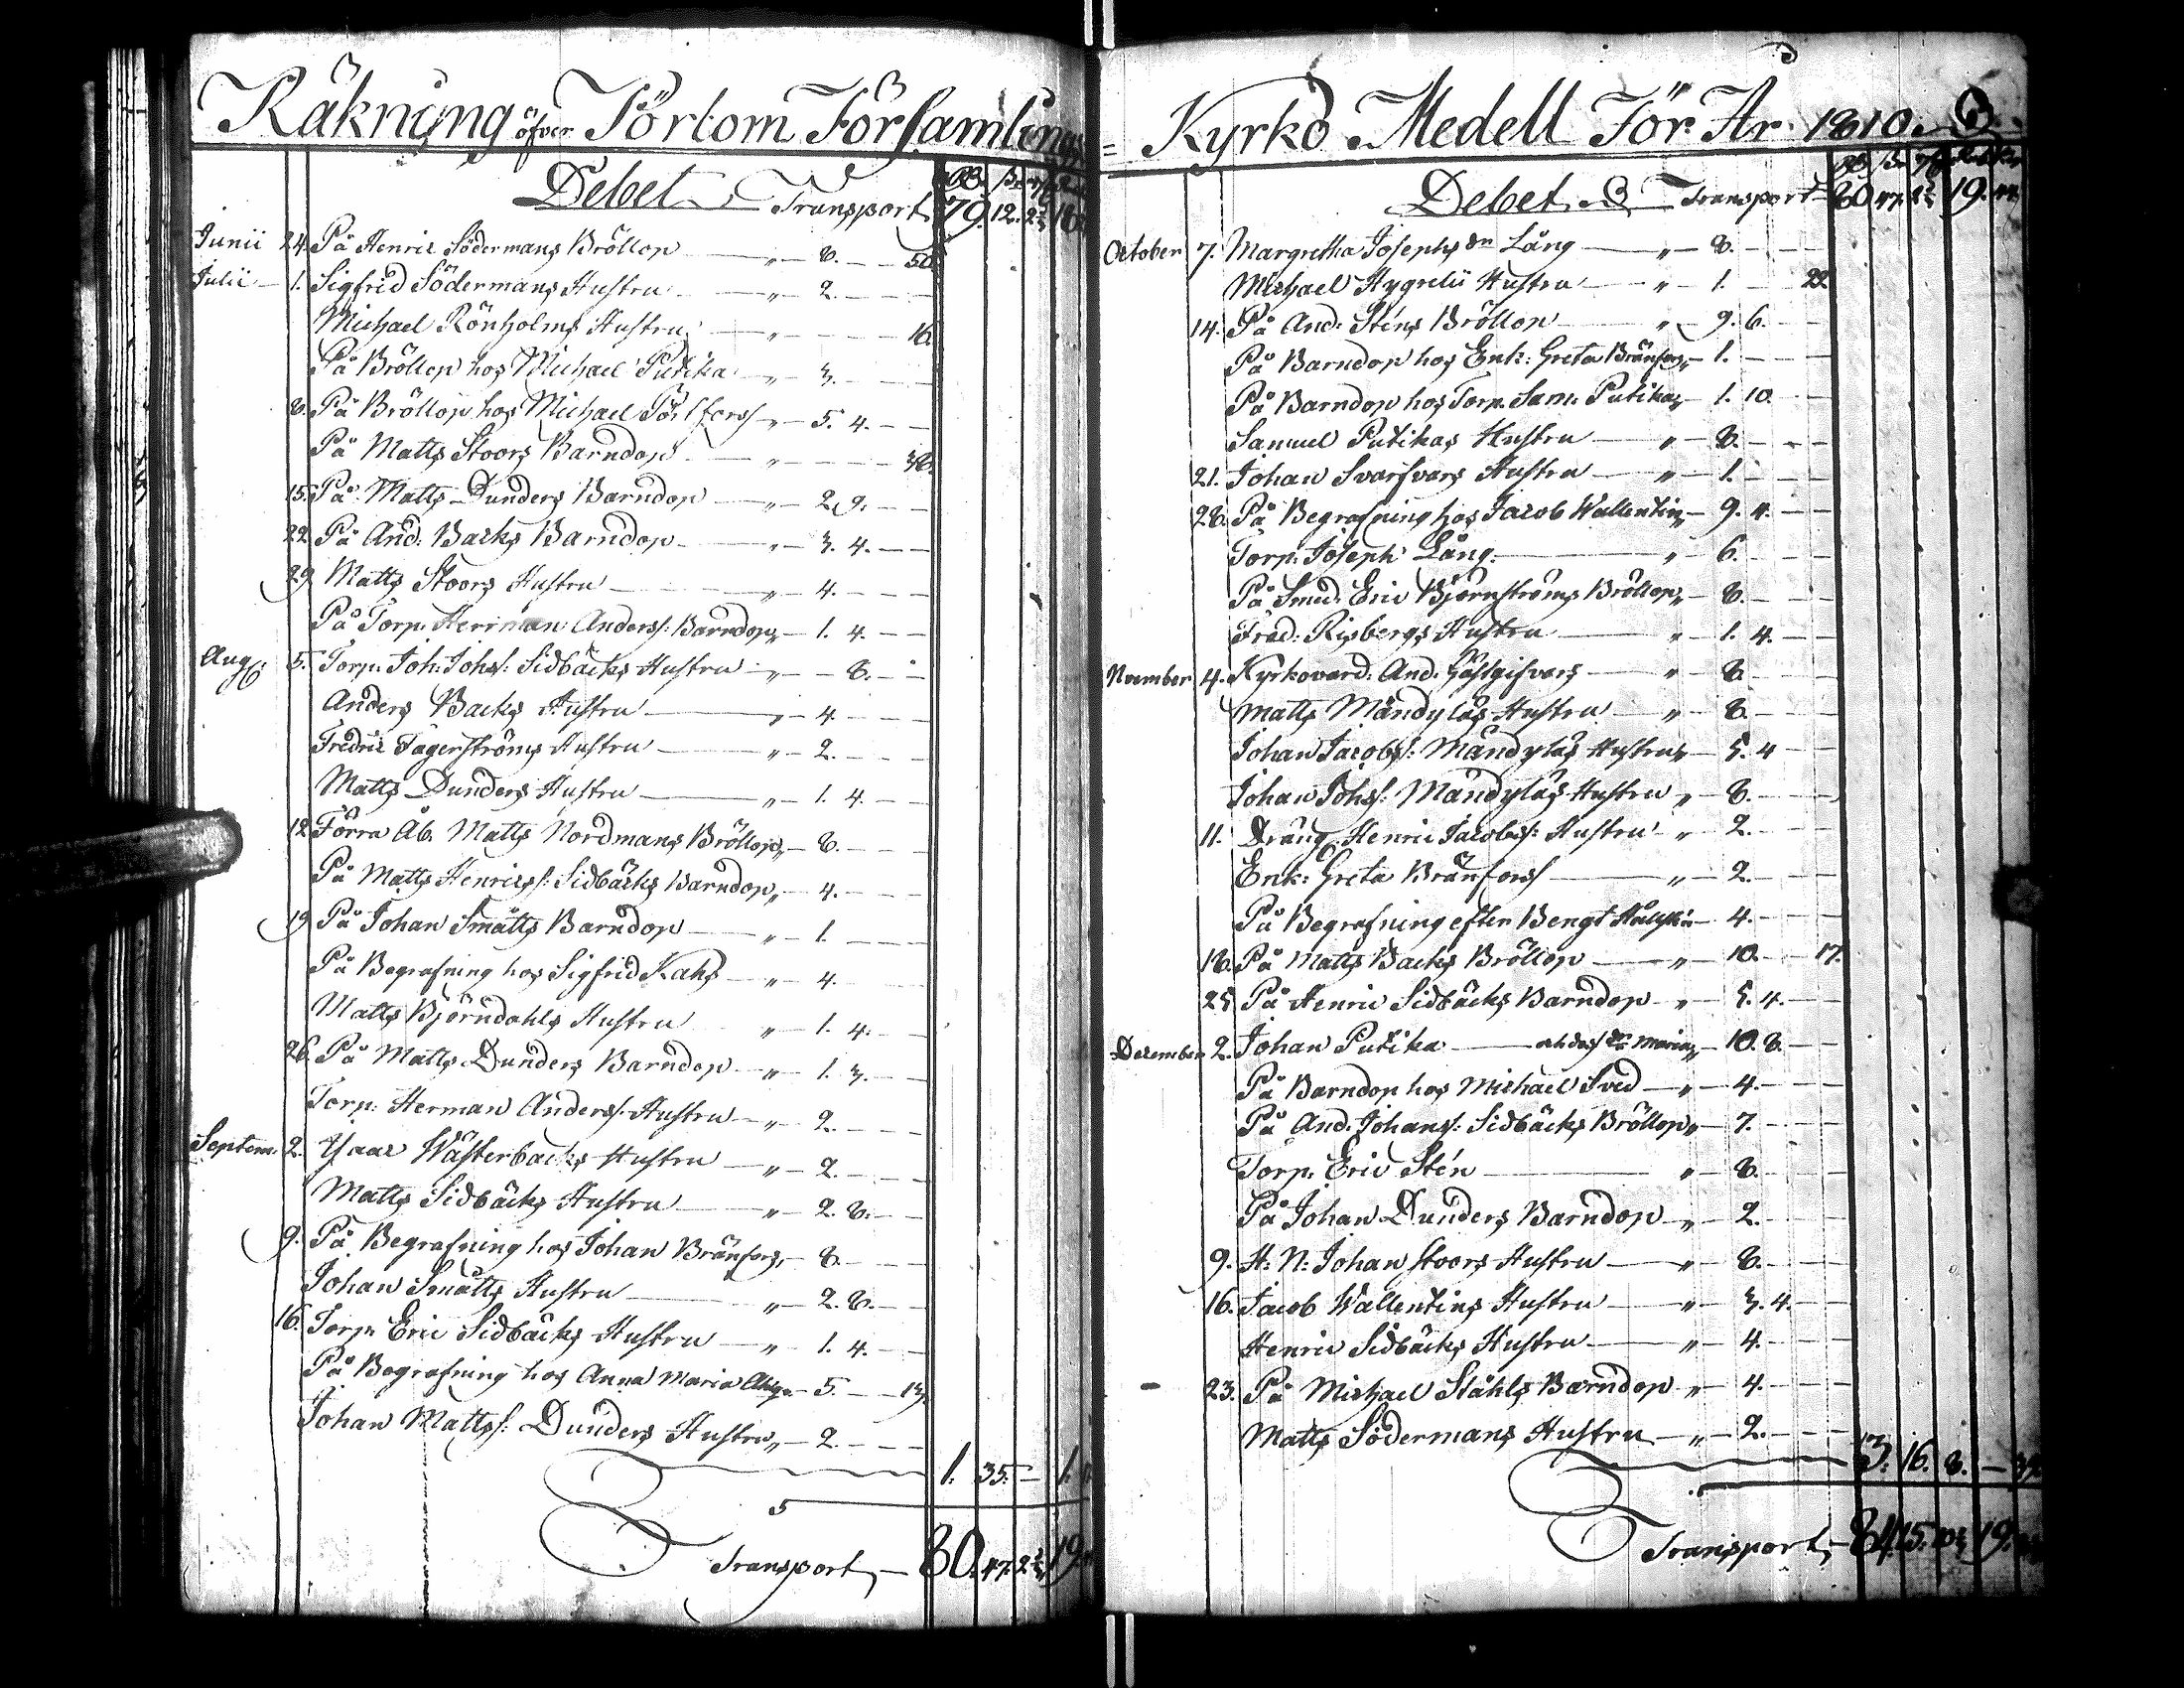 Räkning öfver Pörtom Församlings
Debet Transport 79. 12. 2 2/3 18.
Junii 24. På Henric Södermans Bröllop " 8. 50.
Julii 1. Sigfrid Södermans Hustru " 2.
Michael Rönholms Hustru " 16.
På Bröllop hos Michael Putika " 3.
8. På Bröllop hos Michael Pörtfors " 5. 4.
På Matts Stoors Barndop " 38.
15. På Matts Dunders Barndop " 2. 9.
22. På And: Backs Barndop " 3. 4.
29. Matts Stoors Hustru " 4.
På Torp. Herman Anderss: Barndop " 1. 4.
Aug 5. Torp. Joh: Johss: Sidbäcks Hustru " 8.
Anders Backs Hustru " 4.
Fredric Fagerströms Hustru " 2.
Matts Dunders Hustru " 1. 4.
12. Förra Åb. Matts Nordmans Bröllop " 8.
På Matts Henricss: Sidbäcks Barndop " 4.
19. På Johan Smätts Barndop " 1.
På Begrafning hos Sigfrid Kahs " 4.
Matts Björndahls Hustru " 1. 4.
26. På Matts Dunders Barndop " 1. 3.
Torp: Herman Anderss: Hustru " 2.
Septem. 2. Isaac Wästerbacks Hustru " 2.
Matts Sidbäcks Hustru " 2. 8.
9. På Begrafning hos Johan Bränfors " 8.
Johan Smätts Hustru " 2. 8.
16. Torp. Eric Sidbäcks Hustru " 1. 4.
På Begrafning hos Anna Maria 5. 13.
Johan Mattss: Dunders Hustru " 2.
1. 35. 1.
Transport 80. 47. 2 2/3 19.
Kyrko Medell För År 1810.
Debet Transport 80. 47. 2 2/3 19. 44.
October 7. Margretha Josephs dr Lång " 8.
Michael Hygrelii Hustru " 1. 22.
14. På And: Sténs Bröllop " 9. 6.
På Barndop hos Enk: Greta Bränfors " 1.
På Barndop hos Torp. Sam. Putikas " 1. 10.
Samuel Putikas Hustru " 8.
21. Johan Svarfvars Hustru " 1.
28. På Begrafning hos Jacob Wallentin " 9. 4.
Torp. Joseph Lång " 6.
På Smed. Eric Björnströms Bröllop " 8.
Fred: Risbergs Hustru " 1. 4.
November 4. Kyrkovärd. And. Gästgifvars " 8.
Matts Mändyläs Hustru " 8.
Johan Jacobss: Mändyläs Hustru " 5. 4
Johan Johss: Mändyläs Hustru " 8.
11. Dräng Henric Jacobss: Hustru " 2.
Enk: Greta Bränfors " 2.
På Begrafning efter Bengt 4.
18. På Matts Backs Bröllop " 10. 17.
25 På Henric Sidbäcks Barndop " 5. 4.
December 2. Johan Putika och dess dr Maria " 10. 8.
På Barndop hos Michael Sved " 4.
På And: Johanss: Sidbäcks Bröllop " 7.
Torp. Eric Stén " 8.
På Johan Dunders Barndop " 2.
9. H: N: Johan Stoors Hustru " 8.
16. Jacob Wallentins Hustru " 3. 4.
Henric Sidbäcks Hustru " 4.
23. På Michael Ståhls Barndop " 4.
Matts Södermans Hustru " 2.
3. 16. 8. 39
Transport 84. 15. 10 2/3 19.